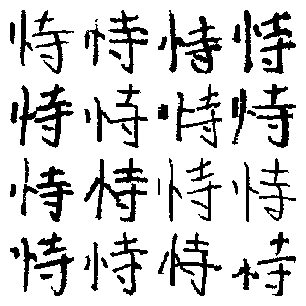 恃恃恃恃
恃恃恃恃
恃恃恃恃
恃恃恃恃